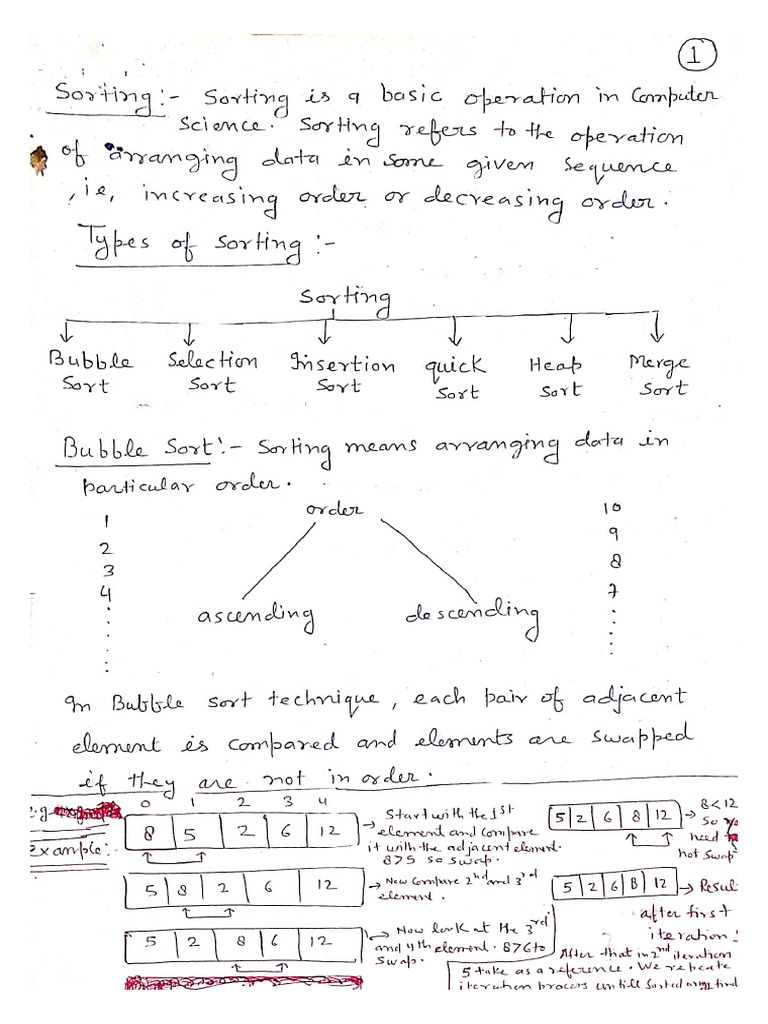 1
Sorting :- Sorting is a basic operation in Computer
Science. Sorting refers to the operation
of arranging data in some given sequence
, ie, increasing order or decreasing order.
Types of Sorting :-
Sorting
Bubble Sort
Selection Sort
Insertion Sort
quick Sort
Heap Sort
Merge Sort
Bubble Sort :- Sorting means arranging data in
particular order.
order
1
2
3
4
ascending
descending
10
9
8
7
In Bubble sort technique, each pair of adjacent
element is compared and elements are swapped
if they are not in order.
Example:-
0 1 2 3 4
8 5 2 6 12
Start with the 1st
element and compare
it with the adjacent element.
875 so swap.
5 8 2 6 12
Now compare 2nd and 3rd
element.
5 2 8 6 12
Now look at the 3rd
and 4th element. 876 to
swap.
5 2 6 8 12
8<12
So
need
not swap
5 2 6 8 12
Resul
after first
iteration:
After that in 2nd iteration
5 take as a reference. We repeate
iteration process untill sorted array find